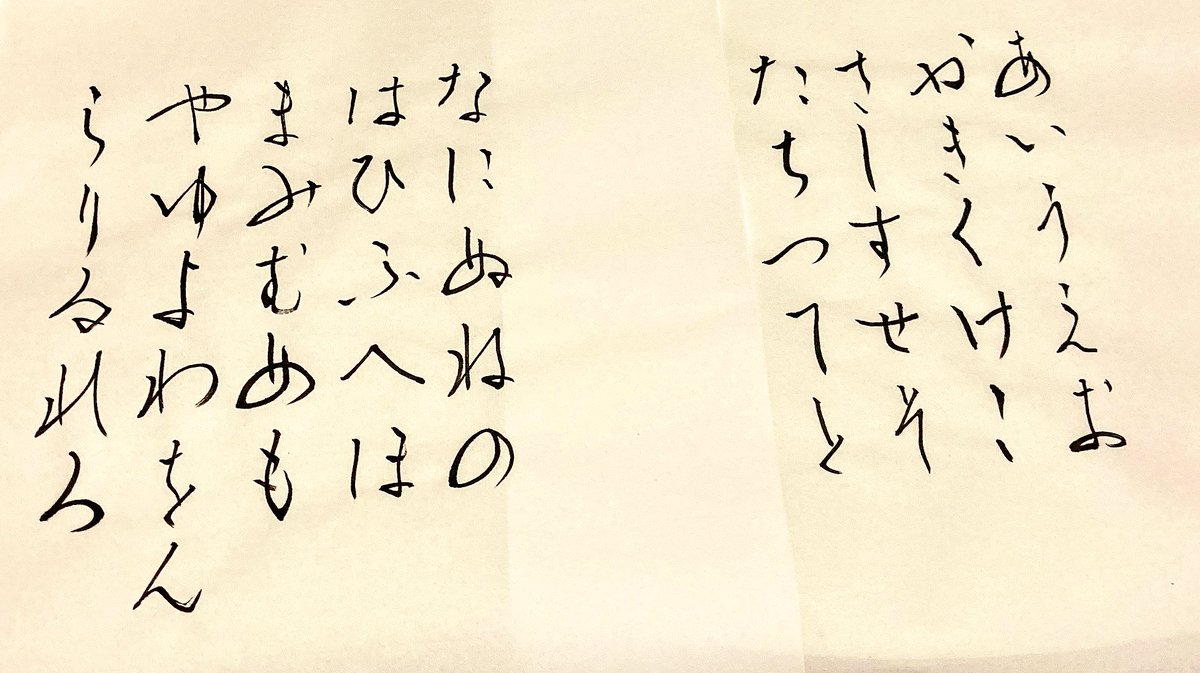 あいうえお
かきくけこ
さしすせそ
たちつてと
なにぬねの
はひふへほ
まみむめも
やゆよわをん
らりるれろ